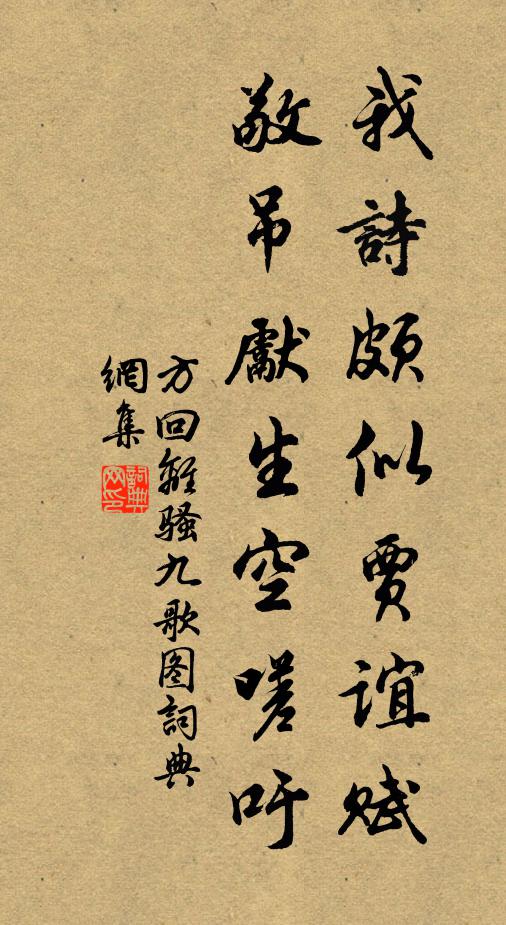 我詩頗似賈誼賦
敬吊獻生空嗟吁
方回離騷九歌图詞典
網集
詞典
网印